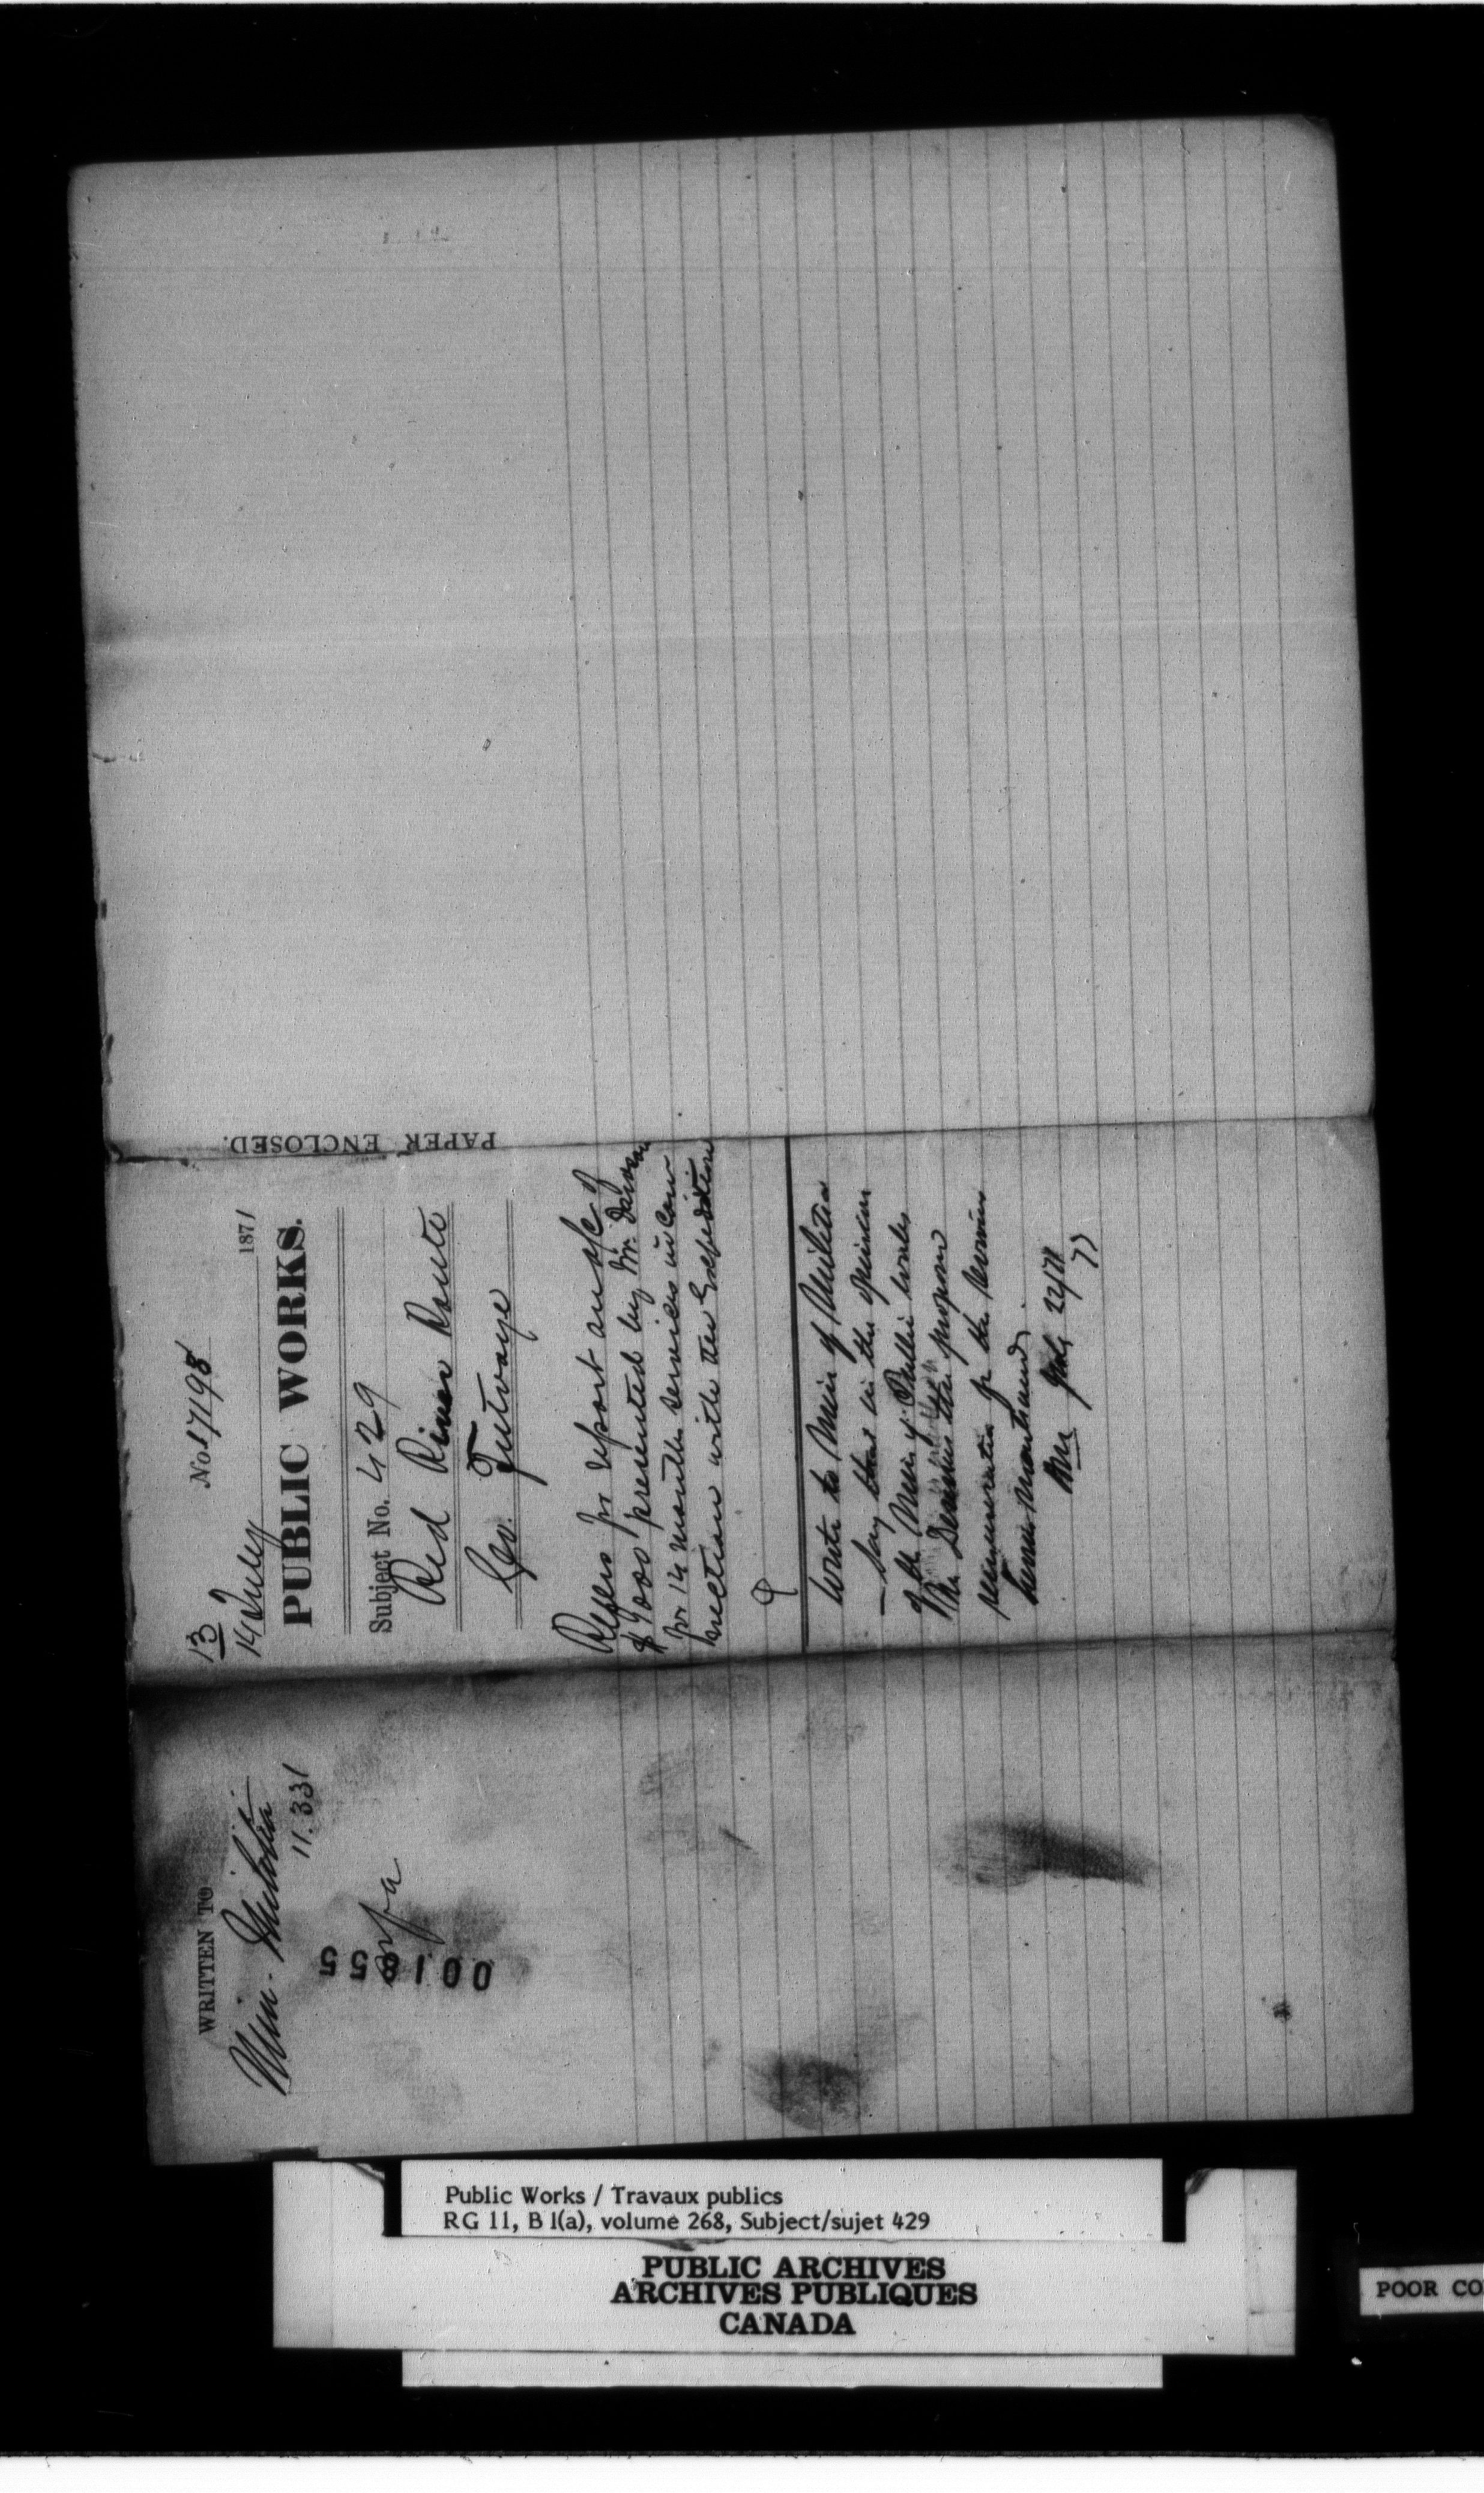 WRITTEN TO
Min. Militia
11.331
001855
13
No. 17198
14 July 1871
PUBLIC WORKS.
Subject No. 429
Red River Route
Geo. Futvoye
Refers for report an a/c of
$4000 presented by Mr. Dawson
for 14 months services in con
nection with the Expedition
Write to Min of Militia
— Say that in the opinion
of the Min of Public Works
Mr. Dawson the proposed
remuneration for the services
herein mentioned.
July 22/71
PAPER ENCLOSED.
Public Works / Travaux publics
RG 11, B 1(a), volume 268, Subject/sujet 429
PUBLIC ARCHIVES
ARCHIVES PUBLIQUES
CANADA
POOR CO